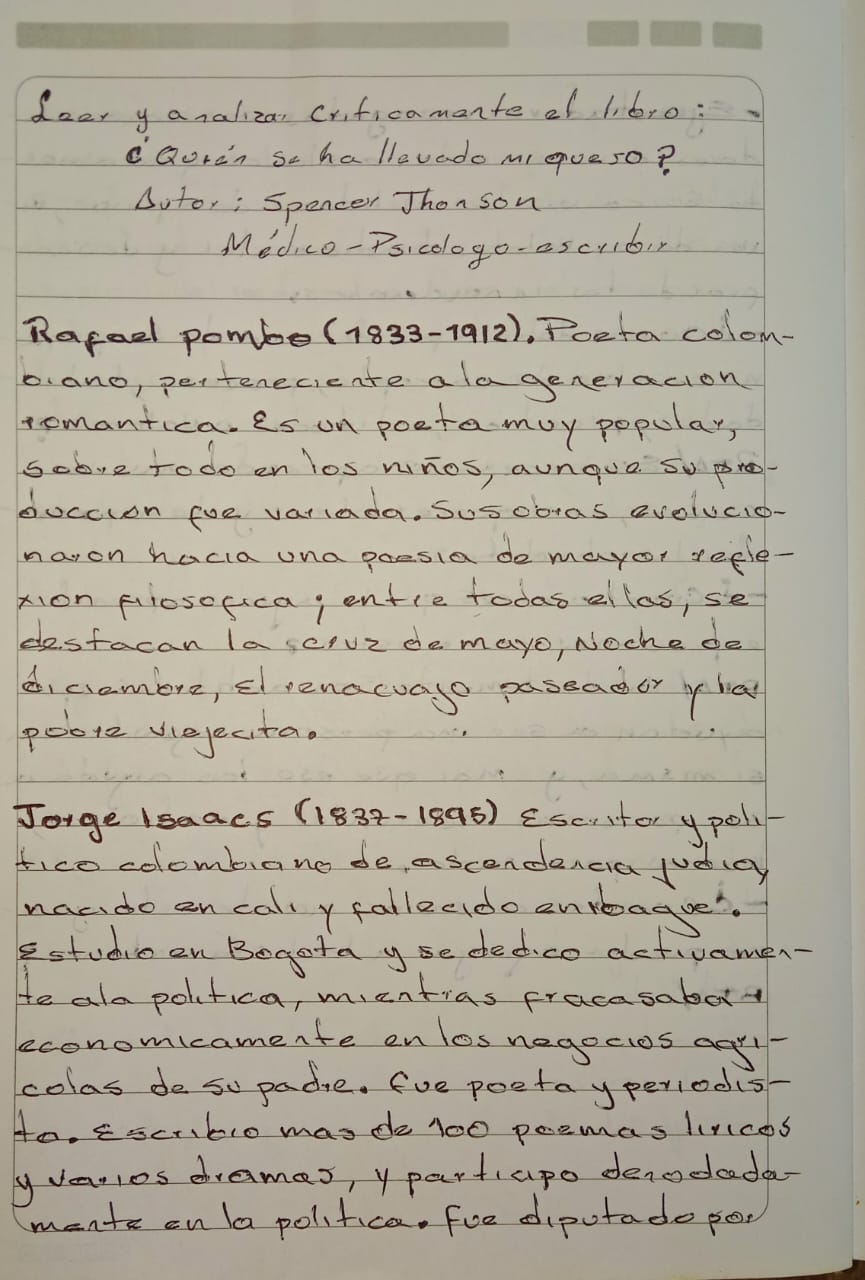 Leer y analizar criticamente el libro:
¿Quién se ha llevado mi queso?
Autor: Spencer Jhonson
Médico-Psicologo-escribir
Rafael pombo (1833-1912). Poeta colom-
biano, perteneciente a la generacion
romantica. Es un poeta muy popular,
sobre todo en los niños, aunque su pro-
duccion fue variada. Sus obras evolucio-
naron hacia una poesia de mayor refle-
xion filosofica; entre todas ellas, se
destacan la cruz de mayo, Noche de
diciembre, El renacuajo paseador y la
pobre viejecita.
Jorge Isaacs (1837-1895) Escritor y poli-
tico colombiano de ascendencia judia,
nacido en cali y fallecido en ibagué.
Estudio en Bogota y se dedico activamen-
te ala politica, mientras fracasaba
economicamente en los negocios agri-
colas de su padre. fue poeta y periodis-
ta. Escribio mas de 100 poemas liricos
y varios dramas, y participo denodada-
mente en la politica. fue diputado por